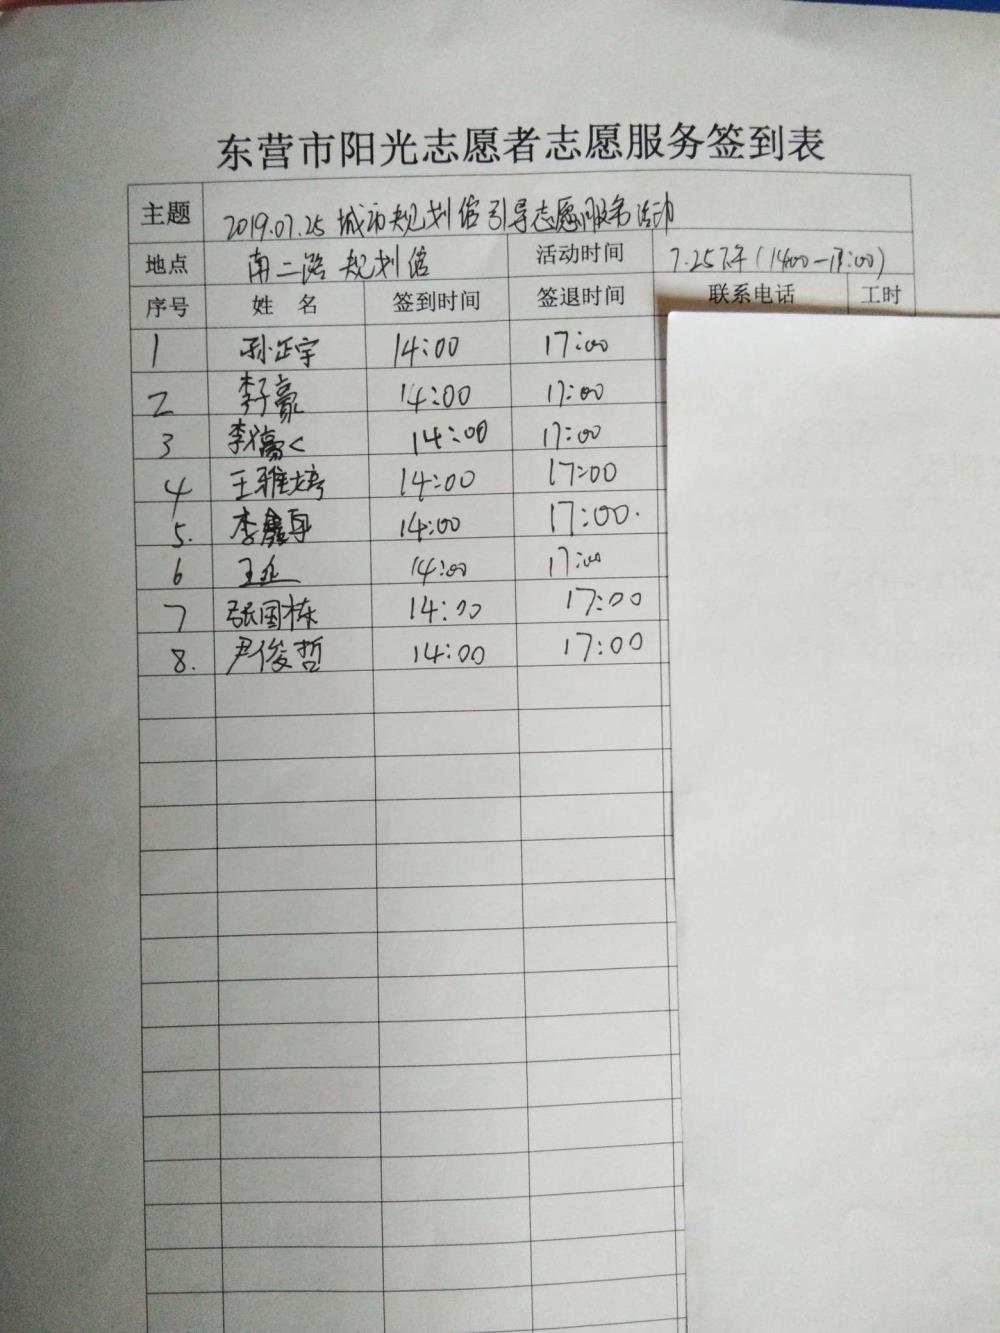 东营市阳光志愿者志愿服务签到表
主题 2019.07.25 城市规划馆引导志愿服务活动
地点 南二路 规划馆 活动时间 7.25下午(14:00—17:00)
序号 姓 名 签到时间 签退时间 联系电话 工时
1 孙正宇 14:00 17:00
2 李子豪 14:00 17:00
3 14:00 17:00
4 王雅婷 14:00 17:00
5. 李鑫 14:00 17:00.
6 王 14:00 17:00
7 张国栋 14:00 17:00
8. 尹俊哲 14:00 17:00